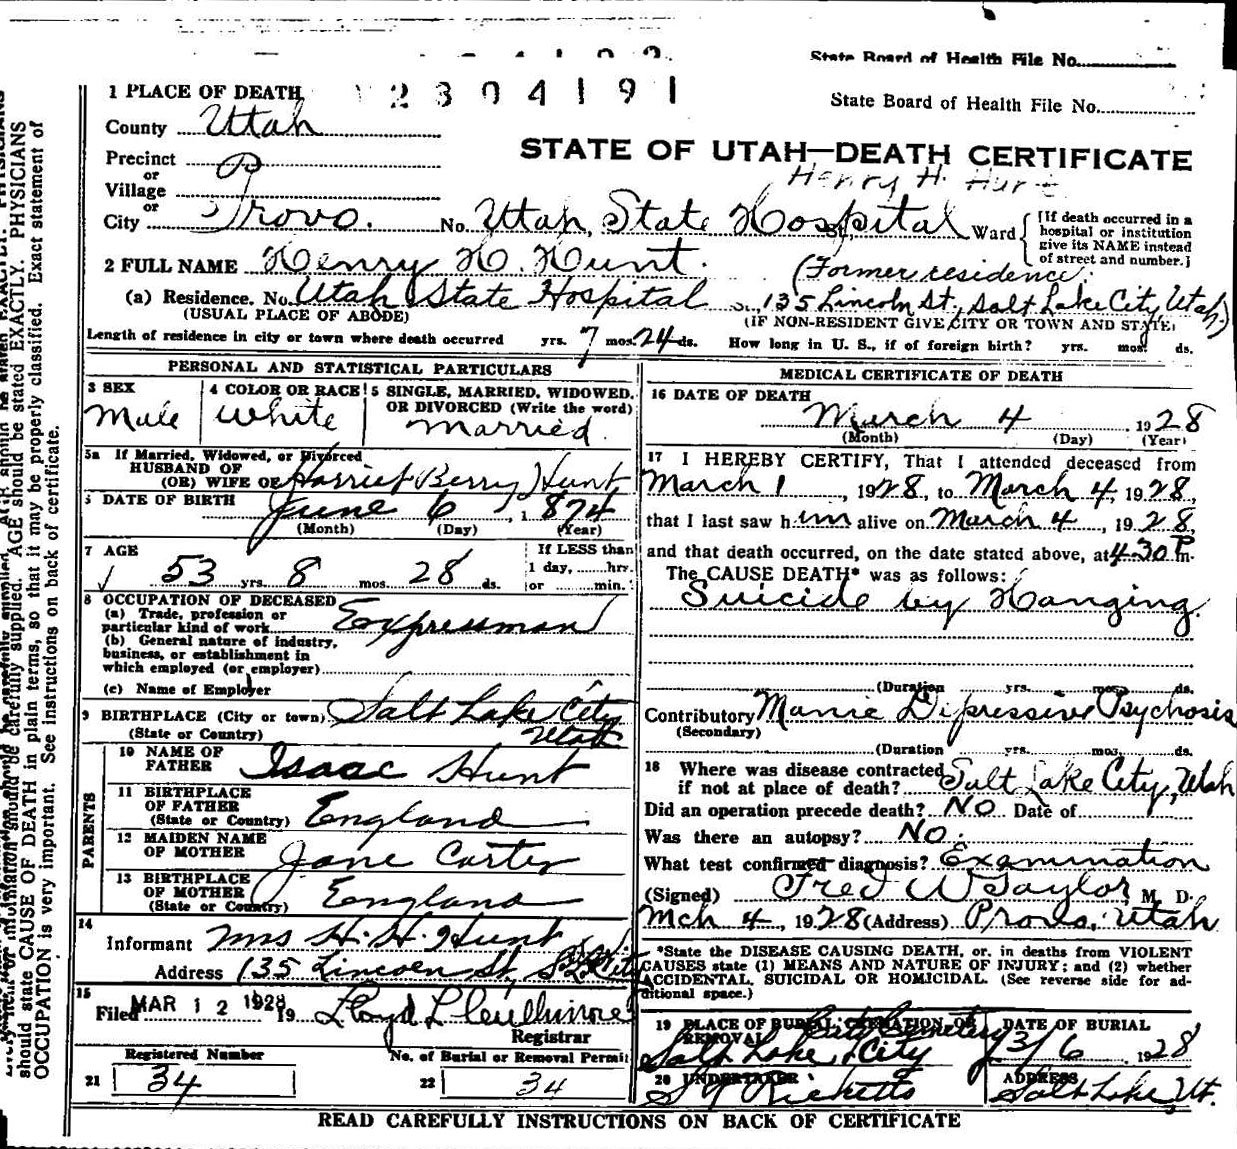 State Board of Health File No.
1 PLACE OF DEATH 2304191
State Board of Health File No.
County Utah
STATE OF UTAH—DEATH CERTIFICATE
Precinct
or
Village
Henry H. Hunt
or
City Provo. No. Utah State Hospital St. Ward
[If death occurred in a hospital or institution give its NAME instead of street and number.]
2 FULL NAME Henry H. Hunt.
(Former residence:
(a) Residence. No. Utah State Hospital S., 135 Lincoln St., Salt Lake City, Utah)
(USUAL PLACE OF ABODE) (IF NON-RESIDENT GIVE CITY OR TOWN AND STATE)
Length of residence in city or town where death occurred yrs. 7 mos. 24 ds. How long in U. S., if of foreign birth? yrs. mos. ds.
PERSONAL AND STATISTICAL PARTICULARS
3 SEX 4 COLOR OR RACE 5 SINGLE, MARRIED, WIDOWED,
OR DIVORCED (Write the word)
Male White Married
5a If Married, Widowed, or Divorced
HUSBAND OF
(OR) WIFE OF Harriet Berry Hunt
6 DATE OF BIRTH June 6, 1874
(Month) (Day) (Year)
7 AGE If LESS than
1 day, hrs.
53 yrs. 8 mos. 28 ds. or min.
8 OCCUPATION OF DECEASED
(a) Trade, profession or
particular kind of work Expressman
(b) General nature of industry,
business, or establishment in
which employed (or employer)
(c) Name of Employer
9 BIRTHPLACE (City or town) Salt Lake City
(State or Country) Utah
PARENTS
10 NAME OF
FATHER Isaac Hunt
11 BIRTHPLACE
OF FATHER
(State or Country) England
12 MAIDEN NAME
OF MOTHER Jane Carter
13 BIRTHPLACE
OF MOTHER
(State or Country) England
14
Informant Mrs H. H. Hunt
Address 135 Lincoln St.
15
Filed MAR 12 1928 19
Registrar
Registered Number No. of Burial or Removal Permit
21 34 22 34
MEDICAL CERTIFICATE OF DEATH
16 DATE OF DEATH
March 4, 1928
(Month) (Day) (Year)
17 I HEREBY CERTIFY, That I attended deceased from
March 1, 1928, to March 4, 1928,
that I last saw him alive on March 4, 1928,
and that death occurred, on the date stated above, at 4:30 P m.
The CAUSE DEATH* was as follows:
Suicide by Hanging.
(Duration yrs. mos. ds.
Contributory Manic Depressive Psychosis
(Secondary)
(Duration yrs. mos. ds.
18 Where was disease contracted
if not at place of death? Salt Lake City, Utah
Did an operation precede death? No Date of
Was there an autopsy? No.
What test confirmed diagnosis? Examination
(Signed) Fred W Taylor, M. D.
Mch 4, 1928 (Address) Provo, Utah
*State the DISEASE CAUSING DEATH, or, in deaths from VIOLENT
CAUSES state (1) MEANS AND NATURE OF INJURY; and (2) whether
ACCIDENTAL, SUICIDAL OR HOMICIDAL. (See reverse side for ad-
ditional space.)
19 PLACE OF BURIAL, CREMATION OR DATE OF BURIAL
REMOVAL City Cemetery
Salt Lake City 3/6 1928
20 UNDERTAKER ADDRESS
Ricketts Salt Lake, Ut.
READ CAREFULLY INSTRUCTIONS ON BACK OF CERTIFICATE
should state CAUSE OF DEATH in plain terms, so that it may be properly classified. Exact statement of
OCCUPATION is very important. See instructions on back of certificate.